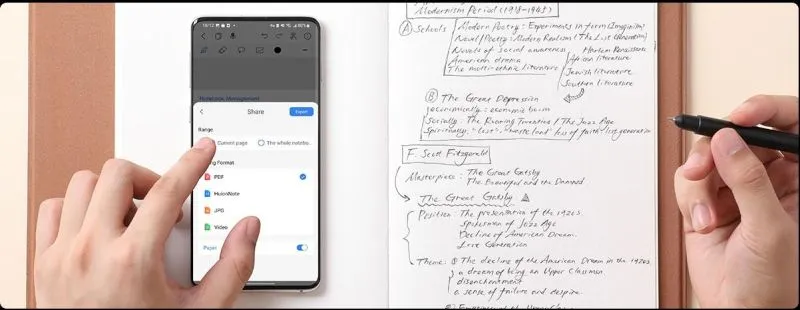 16:12
80%
Notebook Management
Share
Export
Range
Current page
The whole notebo..
ng Format
PDF
HuionNote
JPG
Video
Paper
Modernism Period (1918-1945)
A Schools
Modern Poetry: Experiments in form (Imaginism)
Novel / Poetry: Modern Realism (The Lost Generation)
Novels of social awareness
American drama
The multi-ethnic literature
Harlem Renaissance
African literature
Jewish literature
Southern literature
B The Great Depression
economically: economic boom
Socially: The Roaring Twenties / The Jazz Age
Spiritually: "Lost", "waste land" loss of faith lost generation
F. Scott Fitzgerald
Masterpiece: The Great Gatsby
The Beautiful and the Damned
The Great Gatsby
Position: The presentation of the 1920s
Spokesman of Jazz Age
Decline of American Dream.
Lost Generation
Theme: ① The decline of the American Dream in the 1920s
a dream of being an Upper Classman
disenchantment
a sense of failure and despire